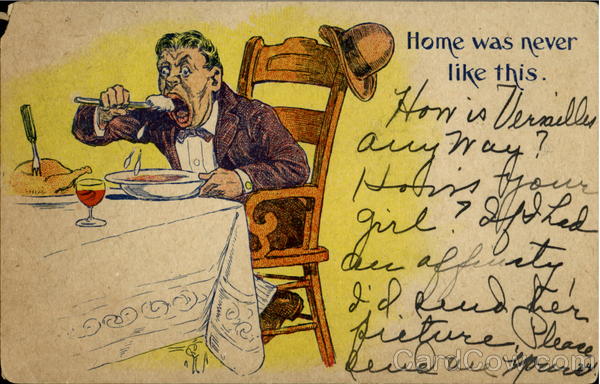 Home was never
like this.
How is Versailles
any way?
How is your
girl? If I had
an affinity
I'd send her
picture. Please
send me
CardCow.com